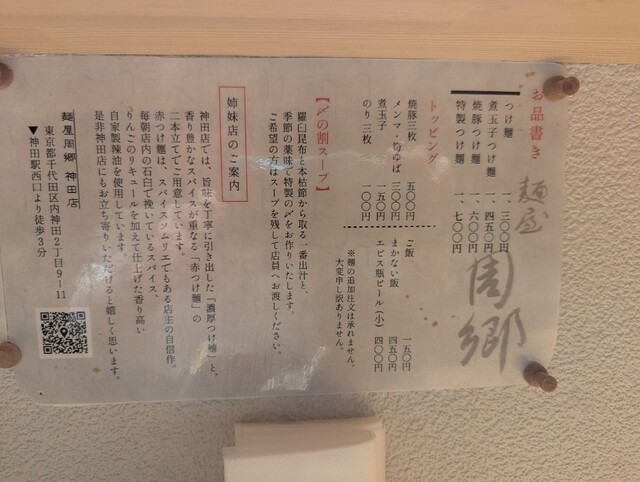 お品書き
麺屋 周郷
つけ麺 一、三〇〇円
煮玉子つけ麺 一、四五〇円
焼豚つけ麺 一、六〇〇円
特製つけ麺 一、七〇〇円
トッピング
焼豚三枚 五〇〇円
メンマ・筍ゆば 三〇〇円
煮玉子 一五〇円
のり三枚 一〇〇円
ご飯 一五〇円
まかない飯 四五〇円
エビス瓶ビール(小) 四〇〇円
※麺の追加注文は承れません。
大変申し訳ありません。
【〆の割スープ】
羅臼昆布と本枯節から取る一番出汁と、
季節の薬味で特製の〆をお作りいたします。
ご希望の方はスープを残して店員へお渡しください。
姉妹店のご案内
神田店では、旨味を丁寧に引き出した「濃厚つけ麺」と、
香り豊かなスパイスが重なる「赤つけ麺」の
二本立てでご用意しています。
赤つけ麺は、スパイスソムリエでもある店主の自信作。
毎朝店内の石臼で挽いているスパイス、
りんごのリキュールを加えて仕上げた香り高い
自家製辣油を使用しています。
是非神田店にもお立ち寄りいただけると嬉しく思います。
麺屋周郷 神田店
東京都千代田区内神田2丁目9-11
▼神田駅西口より徒歩3分